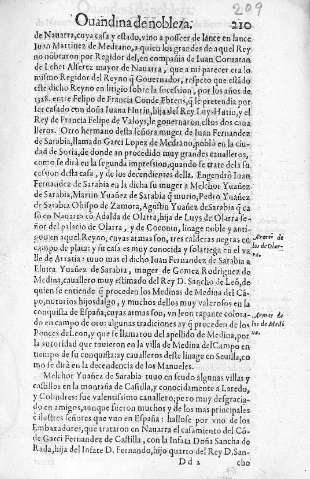 209
Ouandina de nobleza.
210
de Nauarra, cuya casa y estado, vino a posseer de lance en lance
Iuan Martinez de Medrano, a quien los grandes de aquel Rey
no nõbraron por Regidor del, en compañia de Iuan
de Lehet Alferez mayor de Nauarra, que a mi parecer era lo
mismo Regidor del Reyno q̃ Gouernador, respeto que estado
este dicho Reyno en litigio sobre la sucesion, por los años de
1328. entre Felipo de Francia Conde q̃ le pretendia por
ser casado con doña Iuana Hutin, hija del Rey Luys Hutin, y el
Rey de Francia Felipe de Valoys, le gouernaron estos dos caua
lleros. Otro hermano desta señora muger de Iuan Fernandez
de Sarabia, llamado Garci Lopez de Medrano, poblò en la ciu
dad de Soria, de donde an procedido muy grandes caualleros,
como se dirà en la segunda impression, quando se trate desa su
cesion desta casa, y de los decendientes della. Engendrò Iuan
Fernandez de Sarabia en la dicha su muger a Melchor Yuañez
de Sarabia, Martin Yuañez de Sarabia q̃ murio, Pedro Yuañez
de Sarabia Obispo de Zamora, Agustin Yuañez de Sarabia q̃ ca
sò en Nauarra cõ Adalda de Olarra, hija de Luys de Olarra se
ñor del palacio de Olarra, y de linage noble y anti-
guo en aquel Reyno, cuyas armas son, tres calderas negras en
campo de plata: y su casa es muy conocida y solariega en el va
lle de Arratia: tuuo mas el dicho Iuan Fernandez de Sarabia a
Eluira Yuañez de Sarabia, muger de Gomez Rodriguez de
Medina, cauallero muy estimado del Rey D. Sancho de Leõ, de
quien se entiende q̃ proceden los Medinas de Medina del Cã-
po, notorios hijosdalgo, y muchos dellos muy valerosos en la
conquista de España, cuyas armas son, vn leon rapante colora-
do en campo de oro: algunas tradiciones ay q̃ proceden de los
Ponces de Leon, y que se llamaron del apellido de Medina, por
la autoridad que tuuieron en la villa de Medina del Campo en
tiempo de su conquista: ay caualleros deste linage en Seuilla, co
mo se dirà en la decendencia de los Manueles.
Melchor Yuañez de Sarabia tuuo en feudo algunas villas y
castillos en la montaña de Castilla, y conocidamente a Loredo,
y Colindres: fue valentissimo cauallero, pero muy desgracia-
do en amigos, aunque fueron muchos y de los mas principales
e ilustres señores que vuo en España: hallose por vno de los
Embaxadores, que trataron en Nauarra el casamiento del Cõ-
de Garci Fernandez de Castilla, con la Infata Doña Sancha de
Rada, hija del Infate D. Fernando, hijo quarto del Rey D. San-
Armas de
los de Olar-
ra.
Armas de
los de Medi
na.
D d 2
cho